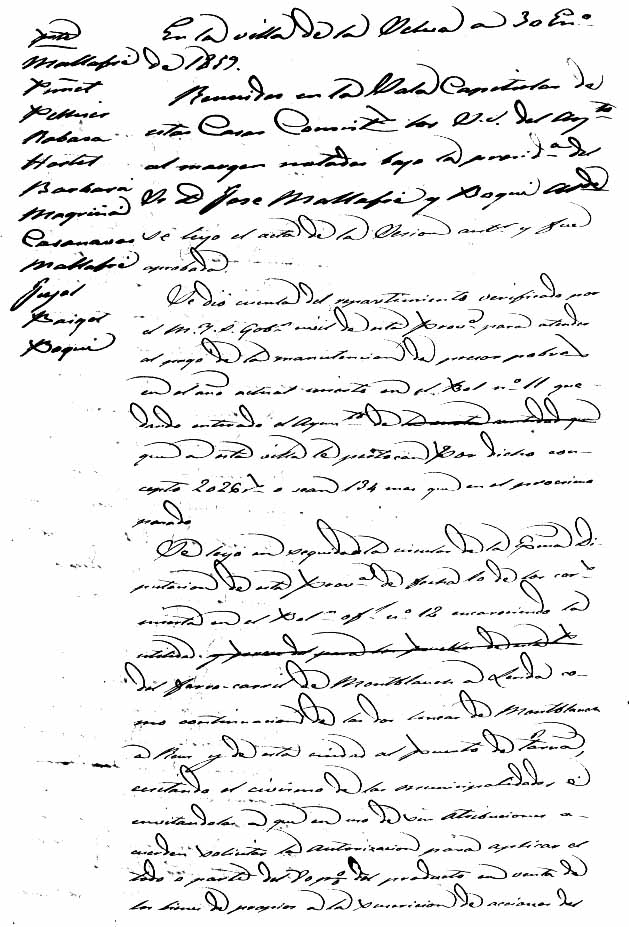 En la villa de la Selva a 30 En.º
de 1859.
Mallafré
Piñet
Pellicer
Rabasa
Hortet
Barbará
Magriñá
Casanovas
Mallafré
Jujol
Puiget
Doqui
Reunidos en la Sala Capitular de
estas Casas Consist.s los S.S. del Ayto
al margen notados bajo la presid.a del
Sr D Jose Mallafré y Doqui Alcde
se leyo el acta de la Sesion antr y fue
aprobada.
Se dió cuenta del repartimiento verificado por
el M. Y. S. Gobr civil de esta Prova para atender
al pago de la manutencion de presos pobres
en el año actual inserto en el Bol nº 11 que-
dando enterado el Ayunto de
que a esta villa le pertocan por dicho con-
cepto 2026 rs o sean 134 mas que en el procsimo
pasado
Se leyó en seguida la circular de la Ecsma Di-
putacion de esta Prova de fecha 10 de los cor.s
inserta en el Boln ofl nº 12 encareciendo la
utilidad
del ferro-carril de Montblanch a Lerida co-
mo continuacion de las dos lineas de Montblanch
a Reus y de esta ciudad al puerto de Tarrª,
escitando el civismo de las municipalidades, é
invitandolas a que en uso de sus atribuciones a-
cuerden solicitar la autorizacion para aplicar el
todo o parte del 80 pg del producto en venta de
los bienes de propios a la suscricion de acciones del